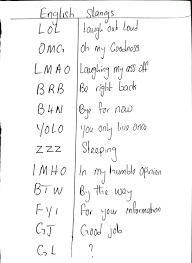 English Slangs
LOL Laugh out Loud
OMG Oh my Goodness
LMAO Laughing my ass off
BRB Be right back
B4N Bye for now
YOLO You only live once
ZZZ Sleeping
IMHO In my humble opinion
BTW By the way
FYI For your information
GJ Good job
GL ?